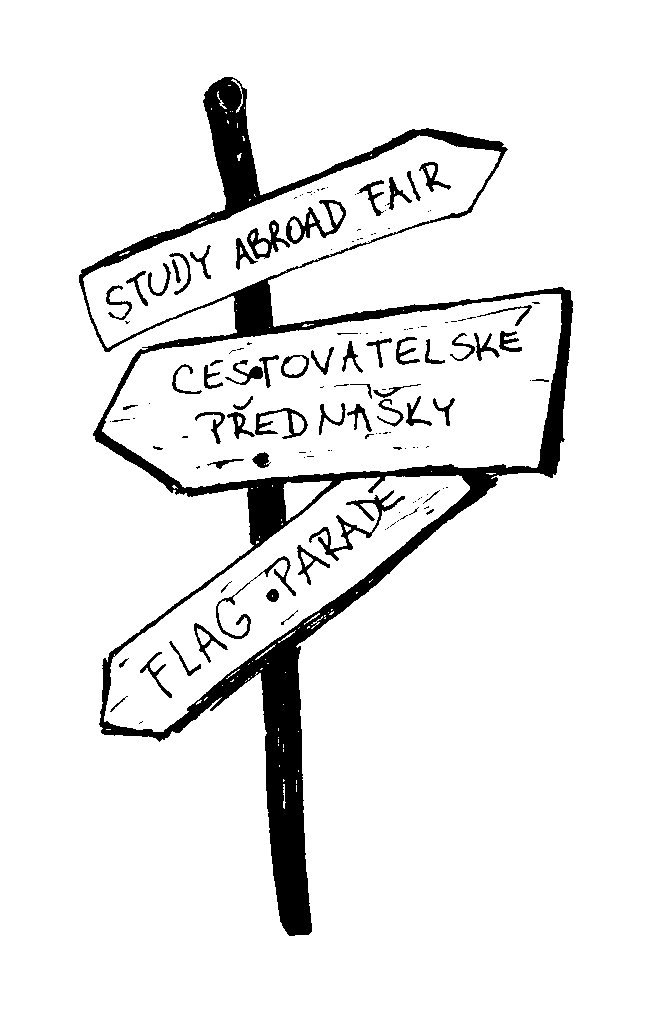 STUDY ABROAD FAIR
CESTOVATELSKÉ
PŘEDNAŠKY
FLAG PARADE